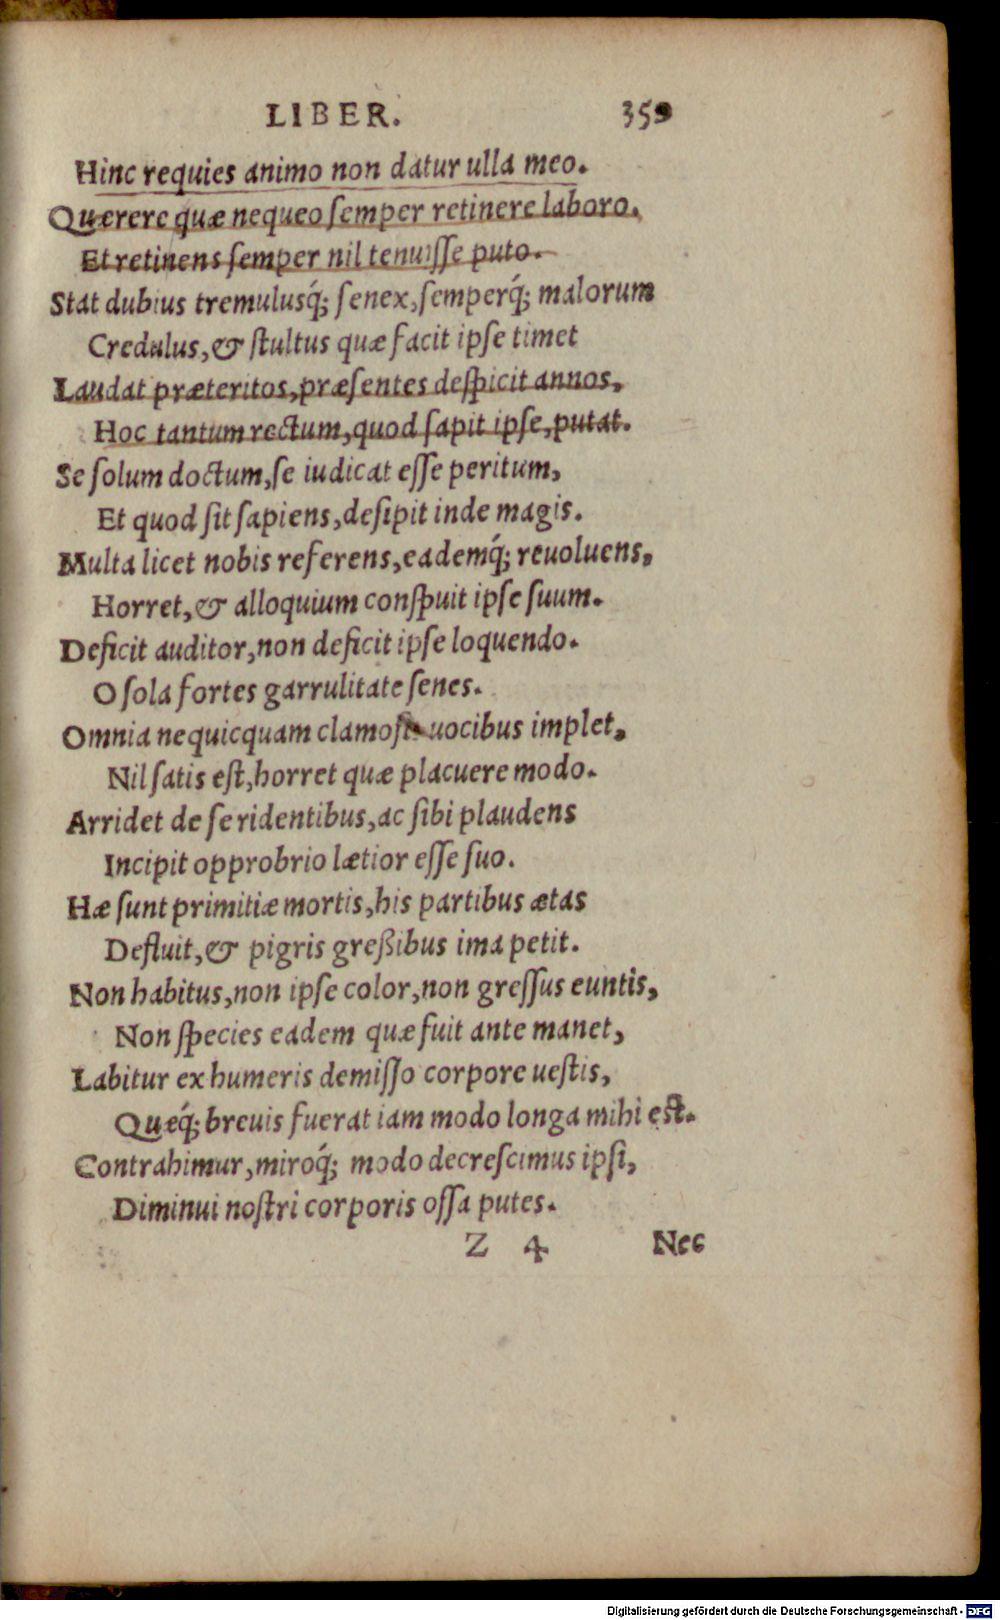 LIBER. 359
Hinc requies animo non datur ulla meo.
Quærere quæ nequeo semper retinere laboro.
Et retinens semper nil tenuisse puto.
Stat dubius tremulusq́; senex, semperq́; malorum
Credulus, & stultus quæ facit ipse timet
Laudat præteritos, præsentes despicit annos,
Hoc tantum rectum, quod sapit ipse, putat.
Se solum doctum, se iudicat esse peritum,
Et quod sit sapiens, desipit inde magis.
Multa licet nobis referens, eademq́; reuoluens,
Horret, & alloquium conspuit ipse suum.
Deficit auditor, non deficit ipse loquendo.
O sola fortes garrulitate senes.
Omnia nequicquam clamosis uocibus implet,
Nil satis est, horret quæ placuere modo.
Arridet de se ridentibus, ac sibi plaudens
Incipit opprobrio lætior esse suo.
Hæ sunt primitiæ mortis, his partibus ætas
Defluit, & pigris greßibus ima petit.
Non habitus, non ipse color, non gressus euntis,
Non species eadem quæ fuit ante manet,
Labitur ex humeris demisso corpore uestis,
Quæq́; breuis fuerat iam modo longa mihi est.
Contrahimur, miroq́; modo decrescimus ipsi,
Diminui nostri corporis ossa putes.
Z 4 Nec
Digitalisierung gefördert durch die Deutsche Forschungsgemeinschaft - DFG